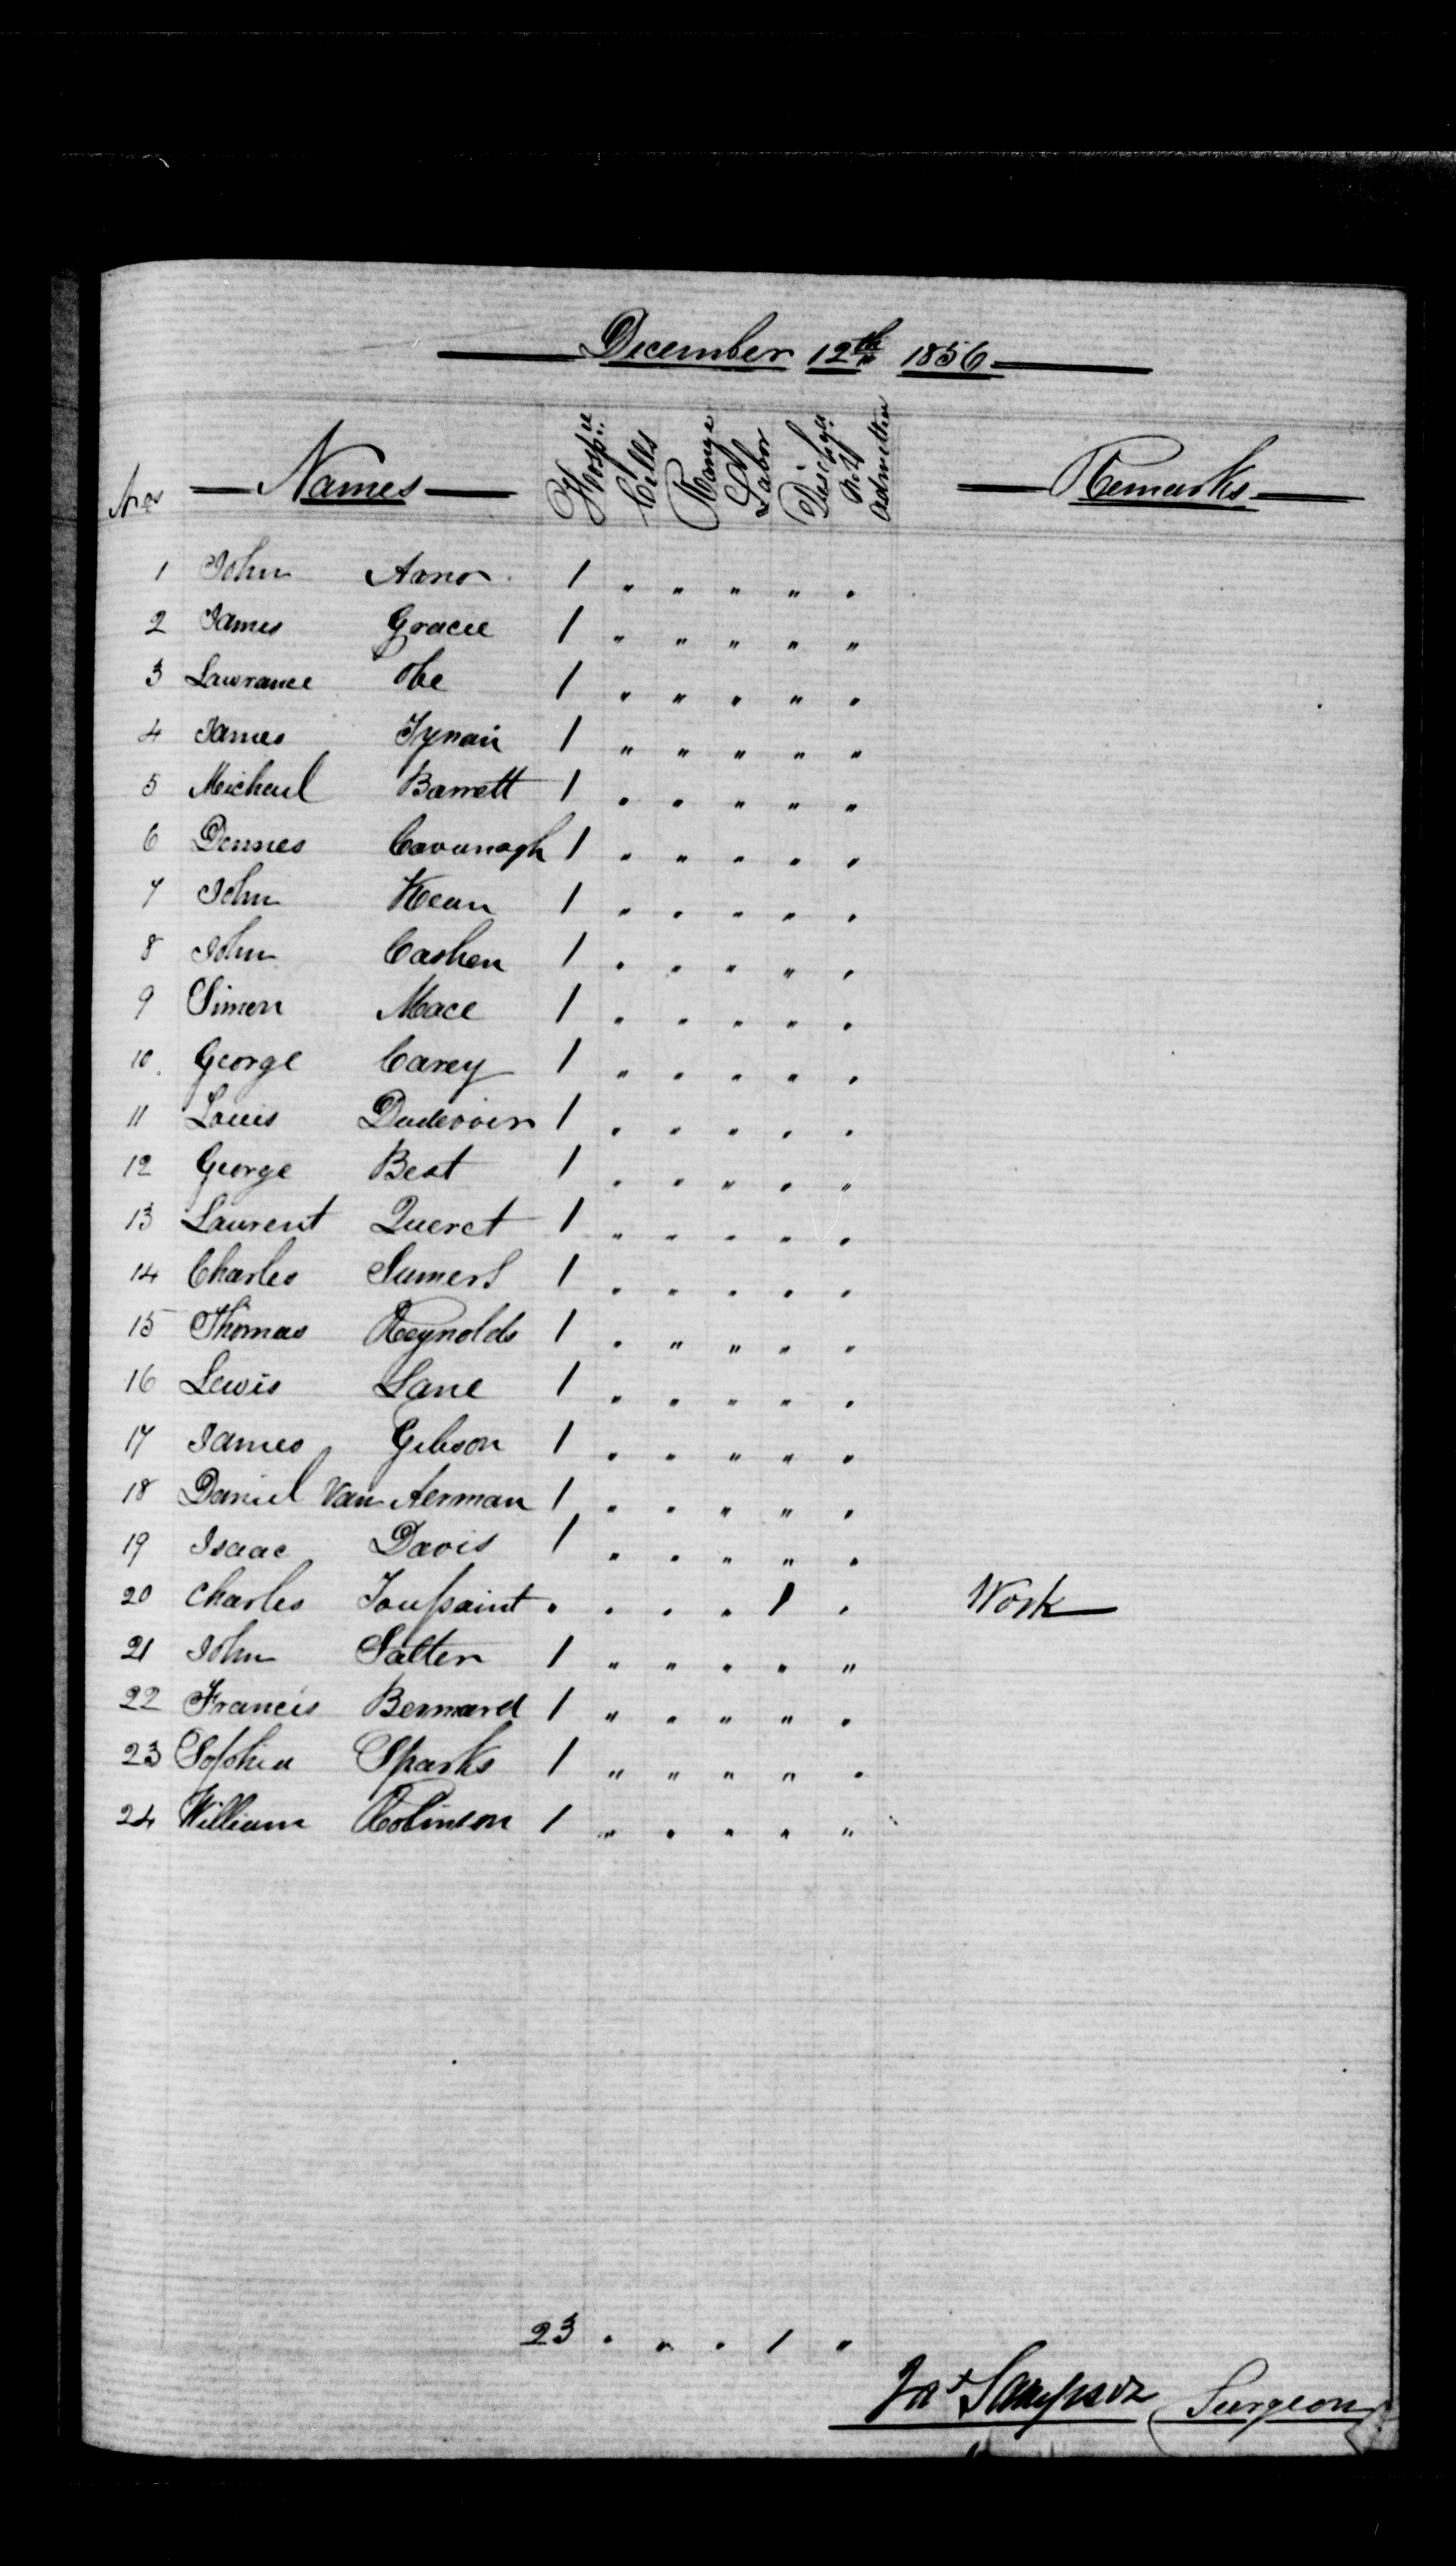 December 12th 1856
Nos Names Hospll Cells Range Labor Dischgd Not Admitted Remarks
1 John Arno 1 " " " " "
2 James Gracie 1 " " " " "
3 Lawrance Obe 1 " " " " "
4 James Tynan 1 " " " " "
5 Micheal Barrett 1 " " " " "
6 Dennes Cavanagh 1 " " " " "
7 John Kean 1 " " " " "
8 John Cashen 1 " " " " "
9 Simon Mace 1 " " " " "
10 George Carey 1 " " " " "
11 Louis Dudevoir 1 " " " " "
12 George Beat 1 " " " " "
13 Laurent Queret 1 " " " " "
14 Charles Sumers 1 " " " " "
15 Thomas Reynolds 1 " " " " "
16 Lewis Lane 1 " " " " "
17 James Gibson 1 " " " " "
18 Daniel Van Aerman 1 " " " " "
19 Isaac Davis 1 " " " " "
20 Charles Toussaint " " " " 1 " Work
21 John Salter 1 " " " " "
22 Francis Bernard 1 " " " " "
23 Sophia Sparks 1 " " " " "
24 William Robinson 1 " " " " "
23 " " " 1 "
Jas Sampson Surgeon